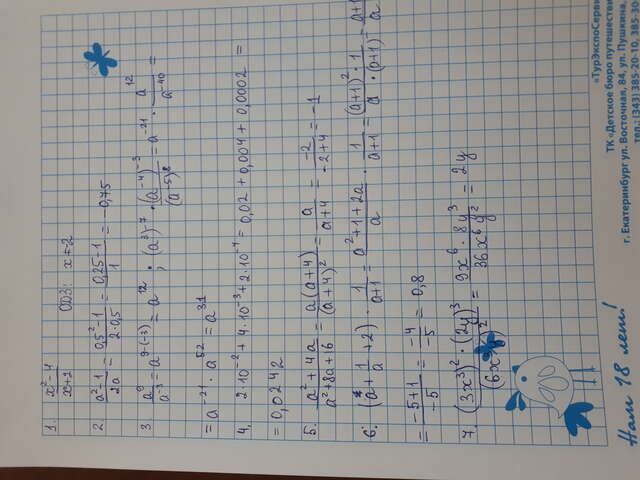 1. \frac{x^2-4}{x+2} ОДЗ: x ≠ -2
2. \frac{a^2-1}{2a} = \frac{0,5^2-1}{2·0,5} = \frac{0,25-1}{1} = -0,75
3 \frac{a^9}{a^{-3}} = a^{9-(-3)} = a^{12} ; (a^3)^{-7} · \frac{(a^{-4})^{-3}}{(a^{-5})^8} = a^{-21} · \frac{a^{12}}{a^{-40}} =
= a^{-21} · a^{52} = a^{31}
4, 2·10^{-2} + 4·10^{-3} + 2·10^{-4} = 0,02 + 0,004 + 0,0002 =
= 0,0242
5. \frac{a^2+4a}{a^2+8a+16} = \frac{a(a+4)}{(a+4)^2} = \frac{a}{a+4} = \frac{-2}{-2+4} = -1
6: (a + \frac{1}{a} + 2) · \frac{1}{a+1} = \frac{a^2+1+2a}{a} · \frac{1}{a+1} = \frac{(a+1)^2·1}{a·(a+1)} = \frac{a+1}{a}
= \frac{-5+1}{-5} = \frac{-4}{-5} = 0,8
7. \frac{(3x^3)^2·(2y)^3}{(6x y)^2} = \frac{9x^6·8y^3}{36x^6y^2} = 2y
Нам 18 лет!
«ТурЭкспоСерви
ТК «Детское бюро путешестви
г. Екатеринбург ул. Восточная, 84, ул. Пушкина,
тел.: (343) 385-20-10, 385-30